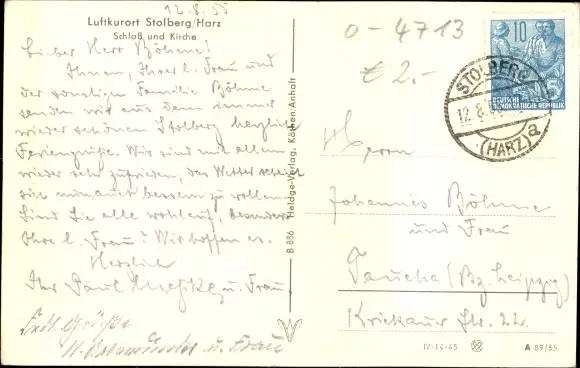 12.8.55
Luftkurort Stolberg/Harz
Schloß und Kirche
Lieber Herr Böhme!
Ihnen, Ihrer l. Frau und
der sonstigen Familie Böhme
senden wir aus dem immer
wieder schönen Stolberg herzlich
Feriengrüße. Wir sind mit allem
wieder sehr zufrieden, das Wetter scheint
sich nun auch bessern zu wollen.
Sind Sie alle wohlauf, besonders
Ihre l. Frau? Wir hoffen es.
Herzlich
Ihr Paul u. Frau
Frdl. Grüße
u. Frau
B 886 Heldge-Verlag, Köthen/Anhalt
0-4713
€ 2.-
10
DEUTSCHE
DEMOKRATISCHE REPUBLIK
STOLBERG
12.8.
(HARZ) a
Herrn
Johannes Böhme
und Frau
Taucha (Bz. Leipzig)
Kriekauer Str. 22.
IV-14-45
A 89/55